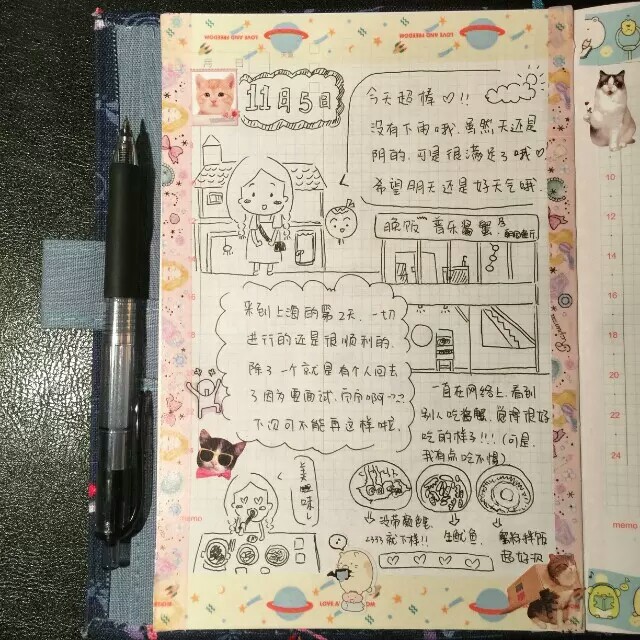 LOVE AND FREEDOM
LOVE AND FREEDOM
11月5日
今天超棒♡!!
没有下雨哦.虽然天还是
阴的.可是很满足了哦♡
希望明天还是好天气哦.
晚饭 音乐酱蟹
来到上海的第2天.一切
进行的还是很顺利的.
除了一个就是有个人回去
了因为要面试.
下次可不能再这样啦.
一直在网络上.看到
别人吃酱蟹.觉得很好
吃的样子!!!(可是.
我有点吃不惯)
美味
没带
就下样!!
生鱿鱼.
蟹粉拌饭
超好次
memo
10
12
14
16
18
20
22
24
memo